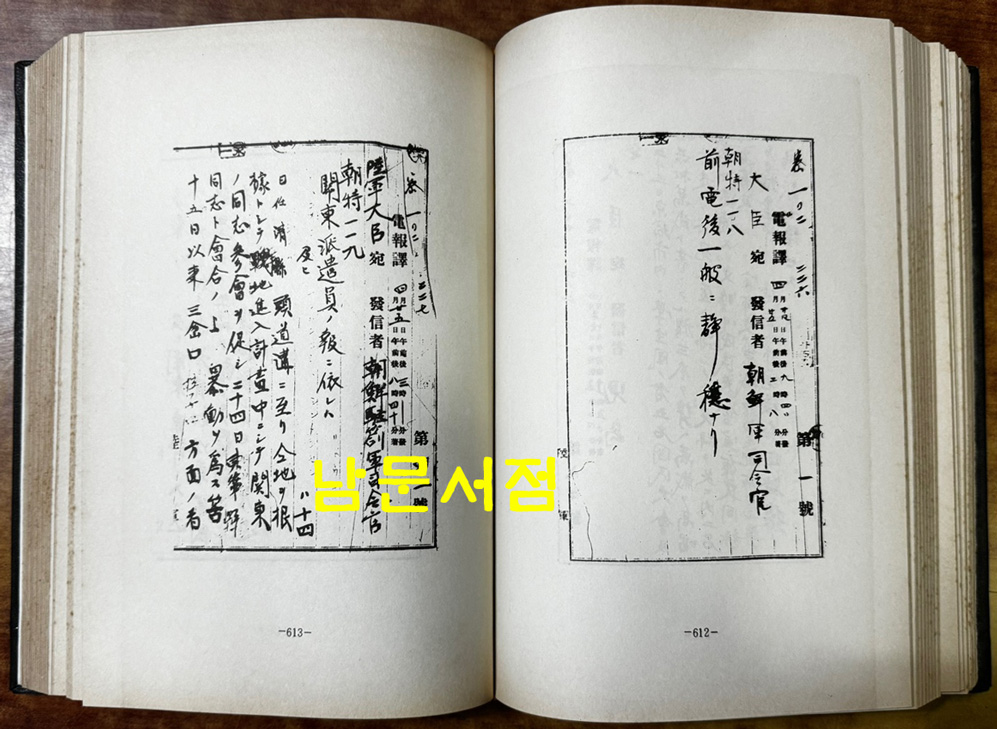 巻 一〇二 二二六
電報譯 四月廿四日午後九時四〇分發 第一號
四月廿五日午前二時八分着
大臣宛 發信者 朝鮮軍司令官
朝特一一八
前電後一般ニ靜穩ナリ
-612-
一〇二 二二七
電報譯 四月廿五日午後三時 分發 第 一號
陸軍大臣宛 發信者 朝鮮駐箚軍司令官
朝特一一九
關東派遣員ノ報ニ依レハ
頭道溝ニ至リ今地ヲ根
據トシテ戰地進入計畫中ニシテ關東
ノ同志參會ヲ促シ二十四日
同志ト會合ノ上 暴動ヲ爲ス筈
十五日以來三岔口 方面ノ者
-613-
남문서점